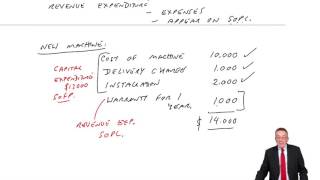 REVENUE EXPENDITURE - EXPENSES
- APPEAR ON SOPL.
NEW MACHINE:
COST OF MACHINE 10.000 ✓
DELIVERY CHARGE 1.000 ✓
INSTALLATION 2.000 ✓
WARRANTY FOR 1 YEAR. 1.000
$ 14.000
CAPITAL
EXPENDITURE
$13000
SOFP.
REVENUE EXP.
SOPL.